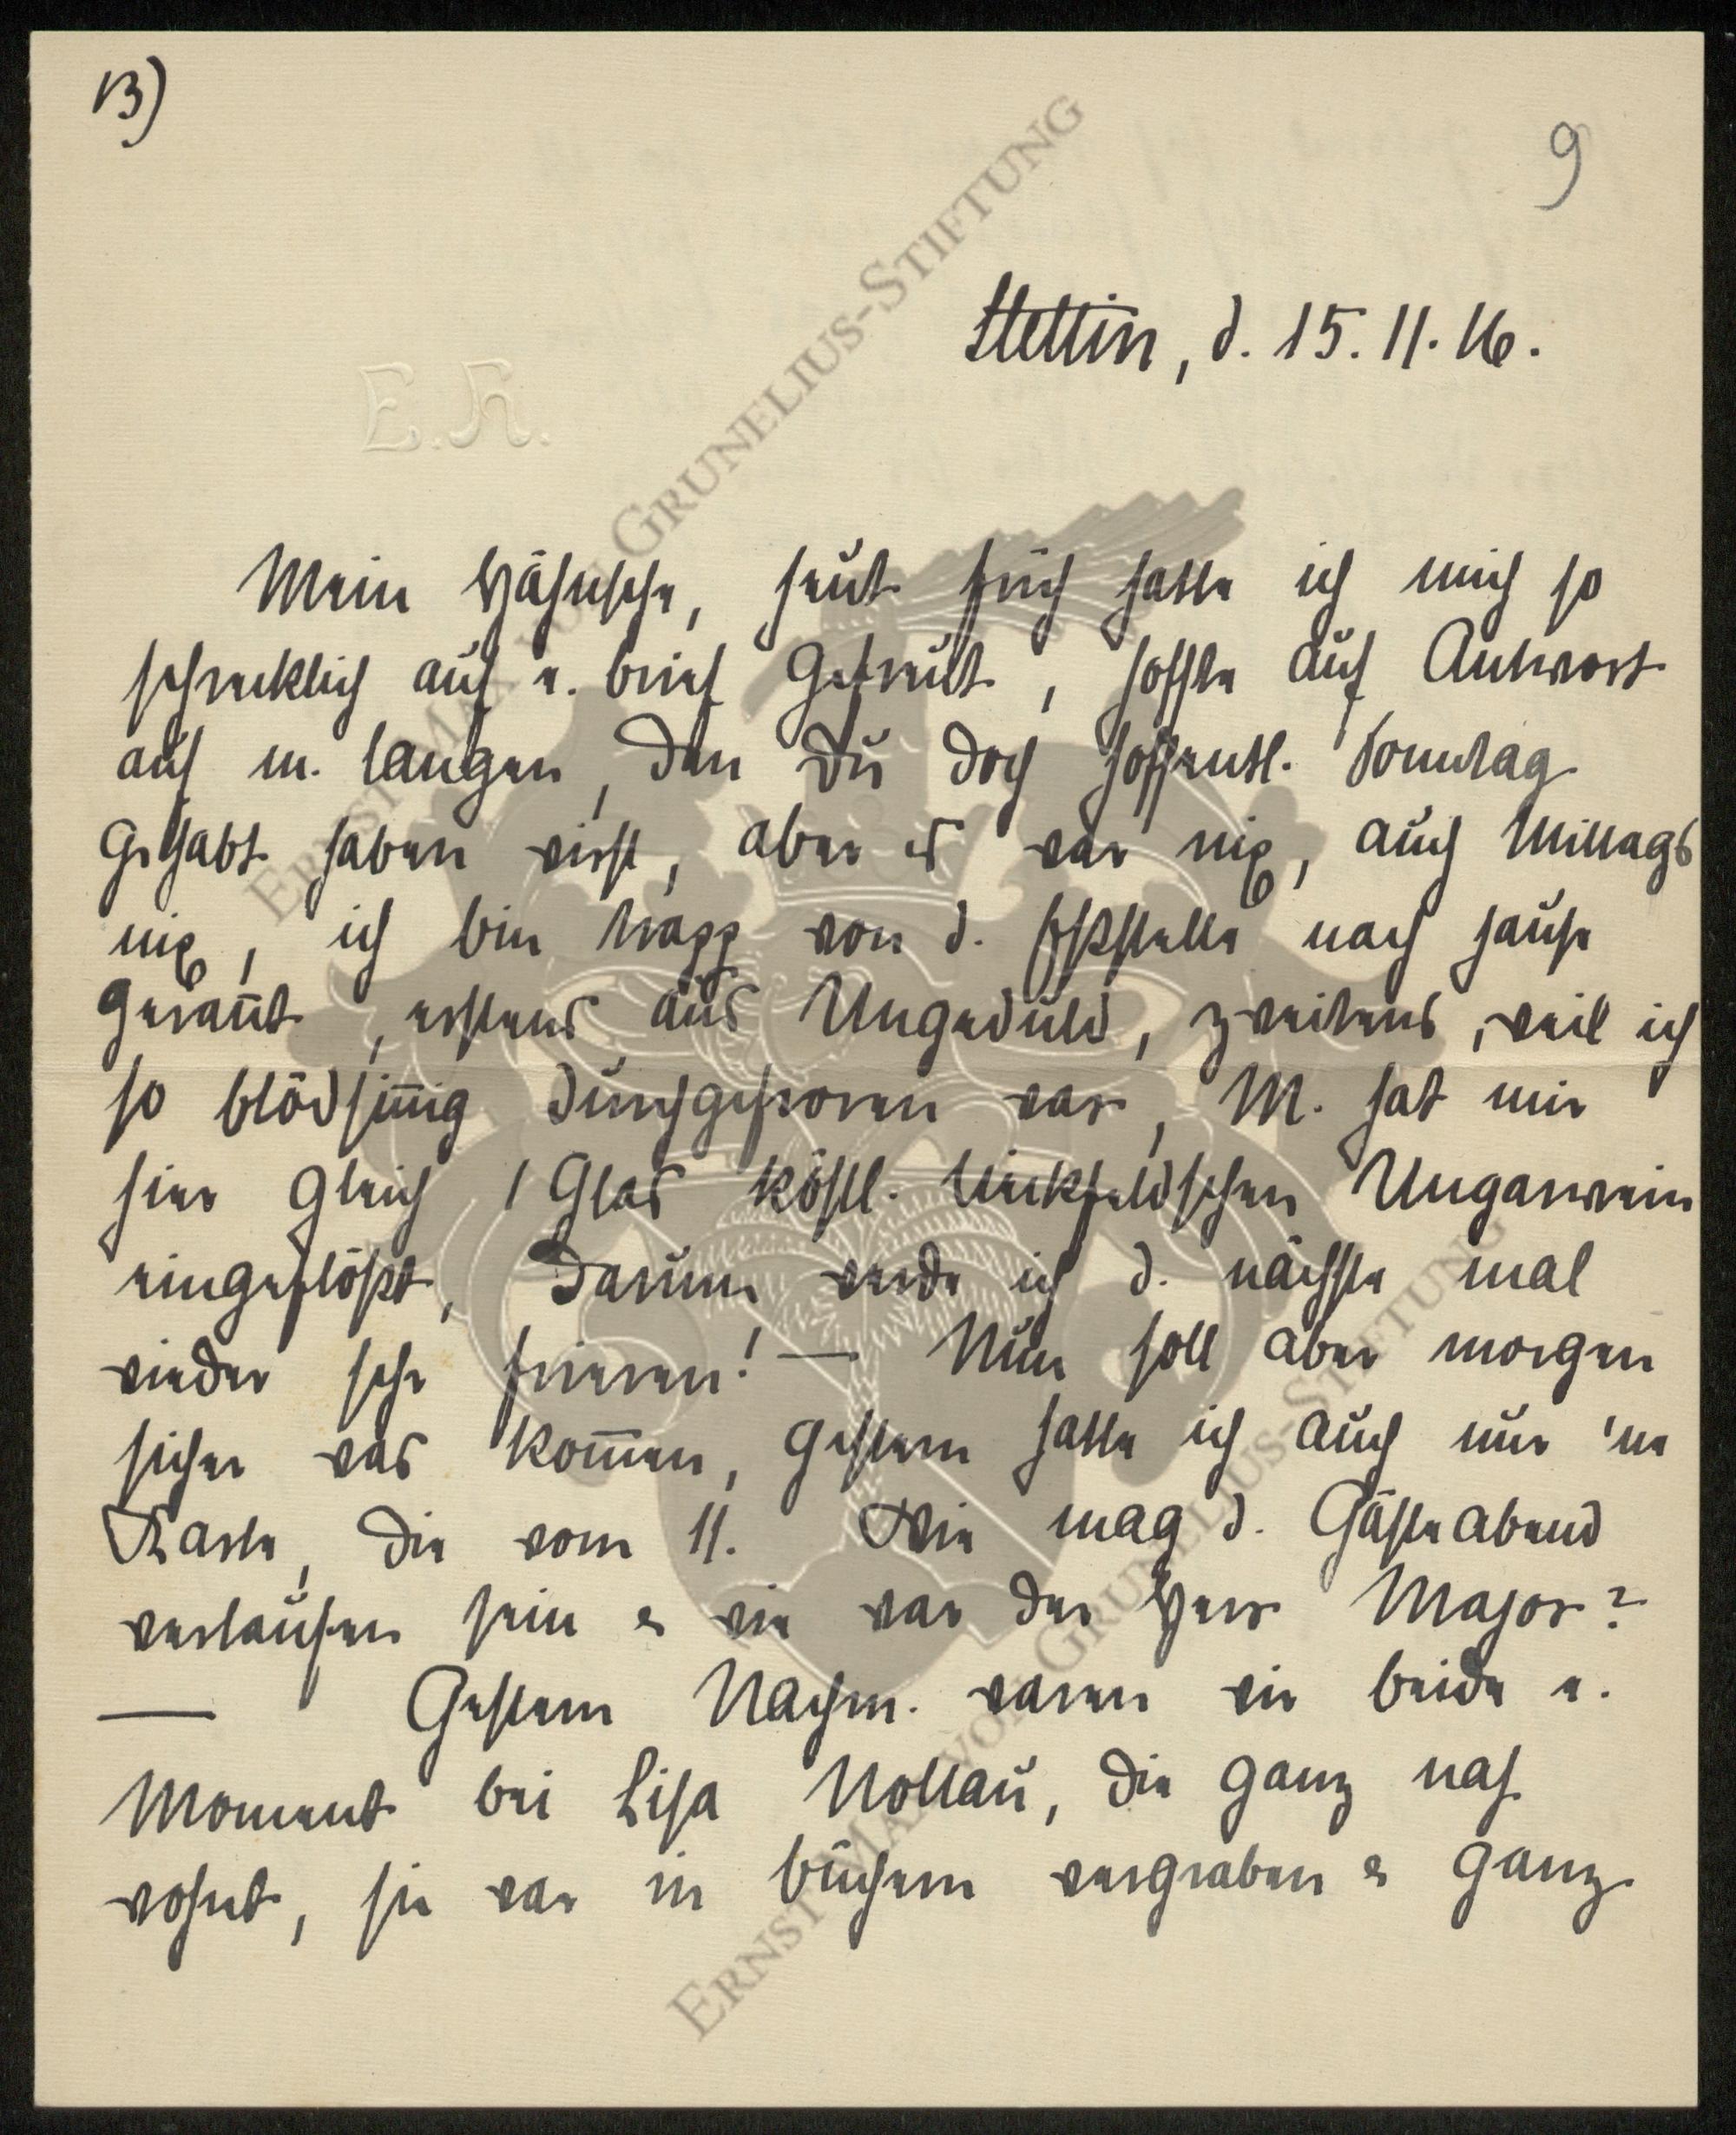 13)
9
Stettin, d. 15. 11. 16.
E.H.
Mein Hähnche, heut früh hatte ich mich so
schrecklich auf e. brief gefreut, hoffte auf Antwort
auf m. langen, den Du doch hoffentl. Sonntag
gehabt haben wirst, aber es war nix, auch Mittags
nix, ich bin trapp von d. nach hause
gerannt, erstens aus Ungeduld, zweitens, weil ich
so blödsinnig durchgefroren war, M. hat mir
hier gleich 1 Glas köstl. Ungarwein
eingeflößt, darum werde ich d. nächste mal
wieder sehr frieren! — Nun soll aber morgen
sicher was kommen, gestern hatte ich auch nur 'ne
Karte, die vom 11. Wie mag d. Gästeabend
verlaufen sein & wie war der Herr Major?
— Gestern Nachm. waren wir beide e.
Moment bei Lisa Nollau, die ganz nah
wohnt, sie war in büchern vergraben & ganz
ERNST MAX VON GRUNELIUS-STIFTUNG
ERNST MAX VON GRUNELIUS-STIFTUNG